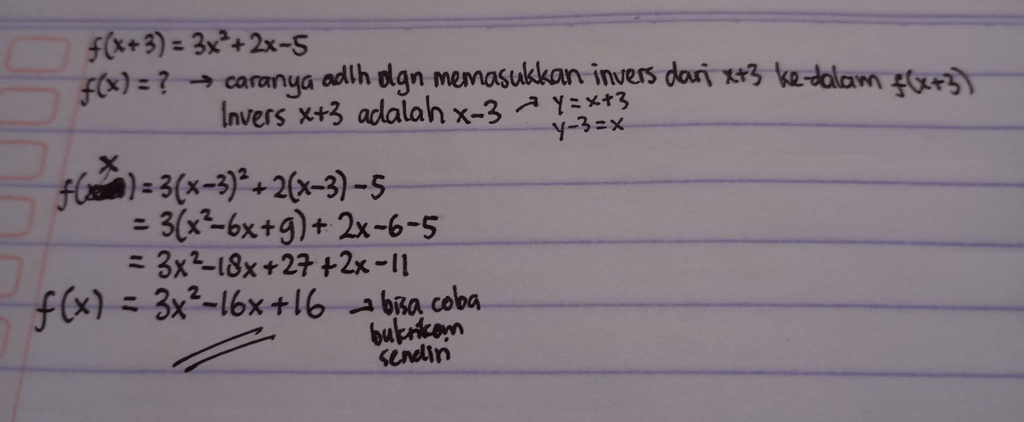 f(x+3) = 3x²+2x-5
f(x) = ? → caranya adlh dgn memasukkan invers dari x+3 ke-dalam f(x+3)
Invers x+3 adalah x-3 → y = x+3
y-3 = x
f(x) = 3(x-3)² + 2(x-3) - 5
= 3(x²-6x+9) + 2x-6-5
= 3x²-18x+27+2x-11
f(x) = 3x²-16x+16 → bisa coba
buktikan
sendiri